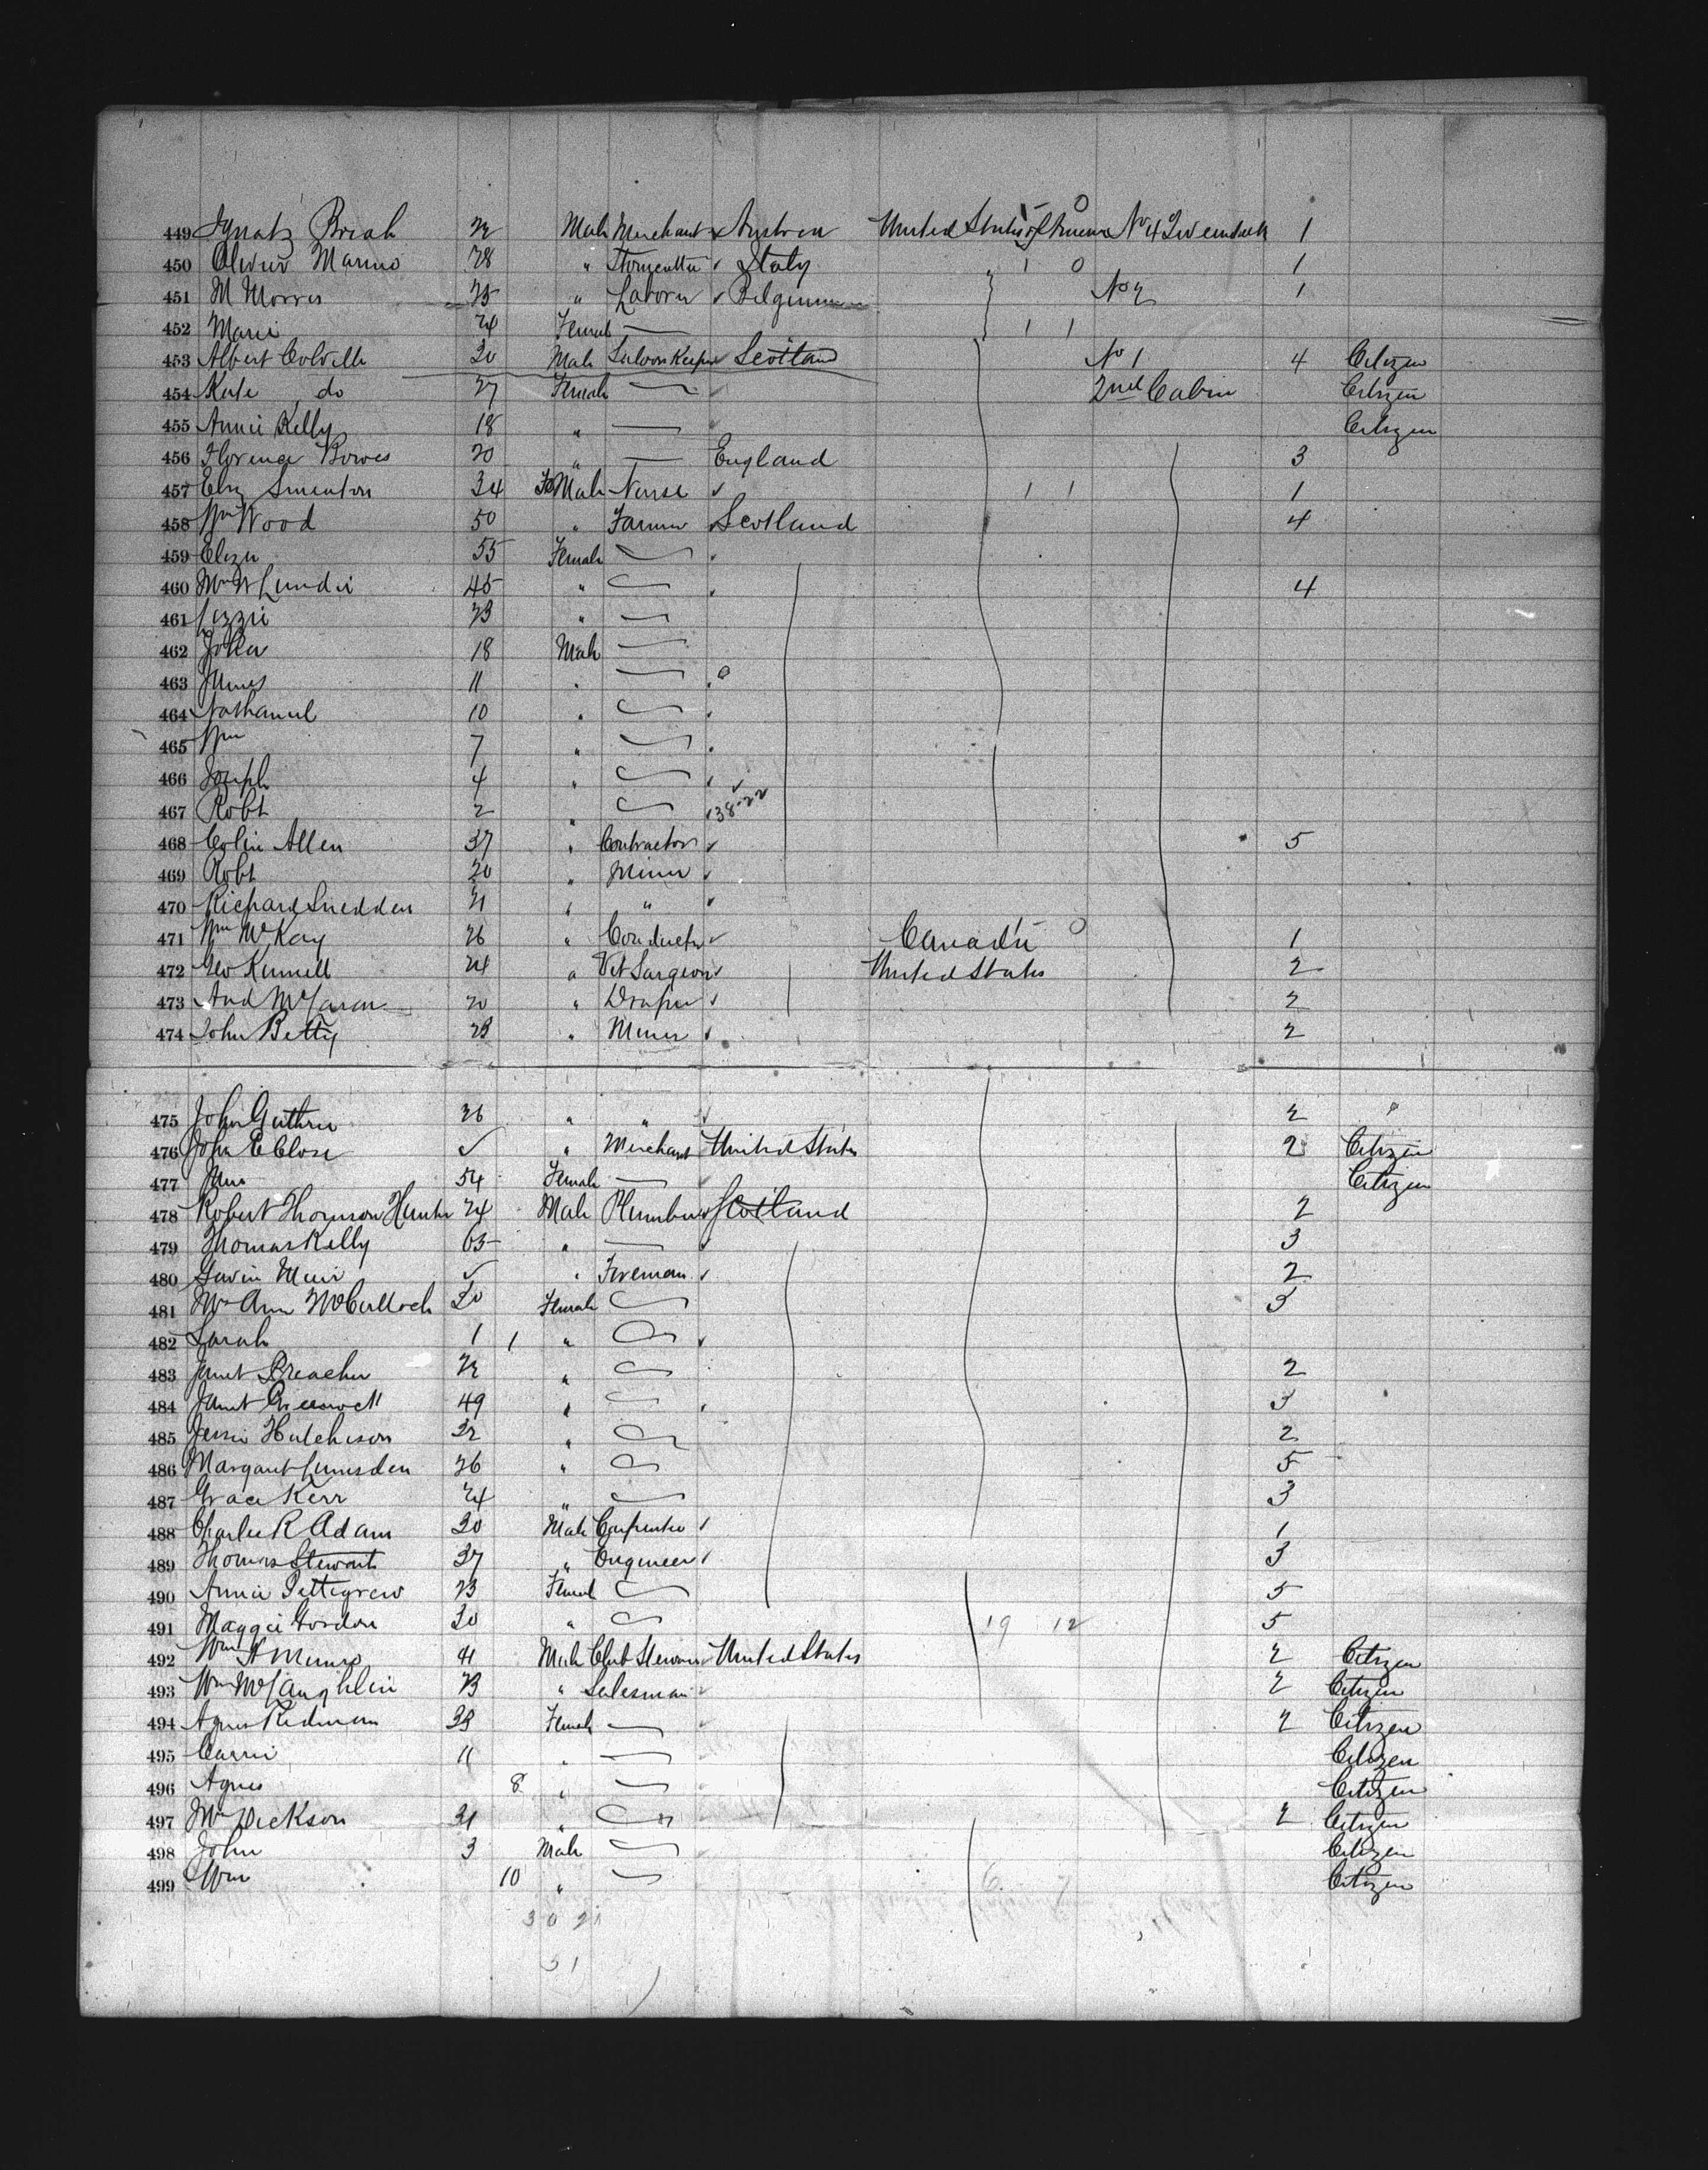 449 Ignatz Briak 22 Male Merchant Austria United States of America No 4 Tweendeck 1
450 Oliver Marino 28 " Stonecutter Italy 1 0 1
451 M Morris 25 " Laborer Belgium No 2 1
452 Marie 24 Female 1 1
453 Albert Colville 30 Male Saloon Keeper Scotland No 1 4 Citizen
454 Kate do 27 Female 2nd Cabin Citizen
455 Annie Kelly 18 " Citizen
456 Florence Bowes 20 " England 3
457 Eliz Smeaton 34 FeMale Nurse 1 1 1
458 Wm Wood 50 " Farmer Scotland 4
459 Eliza 55 Female
460 Mrs W Lundie 45 " 4
461 Lizzie 23 "
462 John 18 Male
463 James 11 "
464 Nathaniel 10 "
465 Wm 7 "
466 Joseph 4 "
467 Robt 2 " 38-22
468 Colin Allen 37 " Contractor 5
469 Robt 20 " Miner
470 Richard Snedden 21 " "
471 Wm McKay 26 " Conductor Canada 0 1
472 Geo Kinnell 24 " Vet Surgeon United States 2
473 And McLaren 20 " Draper 2
474 John Betty 23 " Miner 2
475 John Guthrie 26 " " 2
476 John E Close " Merchant United States 2 Citizen
477 Mrs 54 Female Citizen
478 Robert Thomson Hunter 24 Male Plumber Scotland 2
479 Thomas Kelly 65 " 3
480 Gavin Muir " Fireman 2
481 Mrs Ann McCulloch 30 Female 3
482 Sarah 1 1 "
483 Janet Preacher 22 " 2
484 Janet 49 " 3
485 Jessie Hutchison 22 " 2
486 Margaret Lumsden 26 " 5
487 Grace Kerr 24 " 3
488 Charles R Adam 30 Male Carpenter 1
489 Thomas Stewart 37 " Engineer 3
490 Annie Pettigrew 23 Female 5
491 Maggie Gordon 20 " 19 12 5
492 Wm A Munro 41 Male Club Steward United States 2 Citizen
493 Wm McLaughlin 23 " Salesman 2 Citizen
494 Agnes Redman 33 Female 2 Citizen
495 Carrie 11 " Citizen
496 Agnes 8 " Citizen
497 Mrs Dickson 31 " 2 Citizen
498 John 3 Male Citizen
499 Wm 10 " 6 7 Citizen
30 21
51